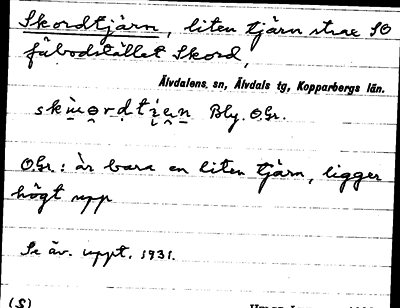 Skordtjärn, liten tjärn strax SO
fäbodstället Skord,
Älvdalens. sn, Älvdals tg, Kopparbergs län.
Bly. O.Gr.
O.Gr.: är bara en liten tjärn, ligger
högt upp
Se äv. uppt. 1931.
(S)